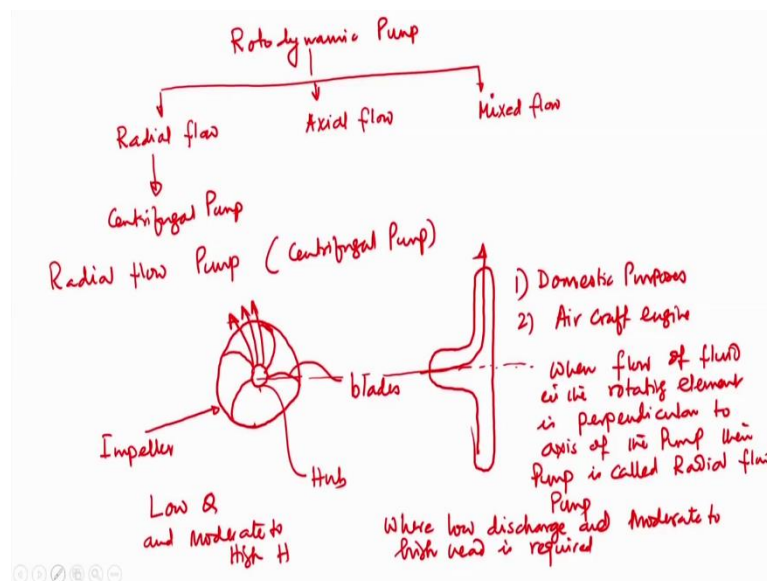 Rotodynamic Pump
Radial flow
Axial flow
Mixed flow
Centrifugal Pump
Radial flow Pump (Centrifugal Pump)
1) Domestic Purposes
2) Air craft engine
When flow of fluid
in the rotating element
is perpendicular to
axis of the Pump then
Pump is called Radial flu
Pump
blades
Impeller
Hub
Low Q
and Moderate to
High H
Where low discharge and Moderate to
high head is required